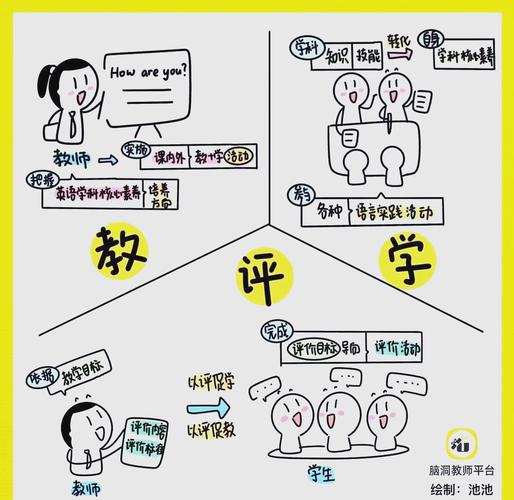 How are you?
教师
实施
课内外
教+学
活动
把握
英语学科核心素养
培养
方向
教
学科
知识
技能
转化
自身
学科核心素养
参与
各种
语言实践活动
学
评
依据
教学目标
评价内容
评价标准
教师
以评促学
以评促教
完成
评价目标导向
评价活动
学生
脑洞教师平台
绘制：池池